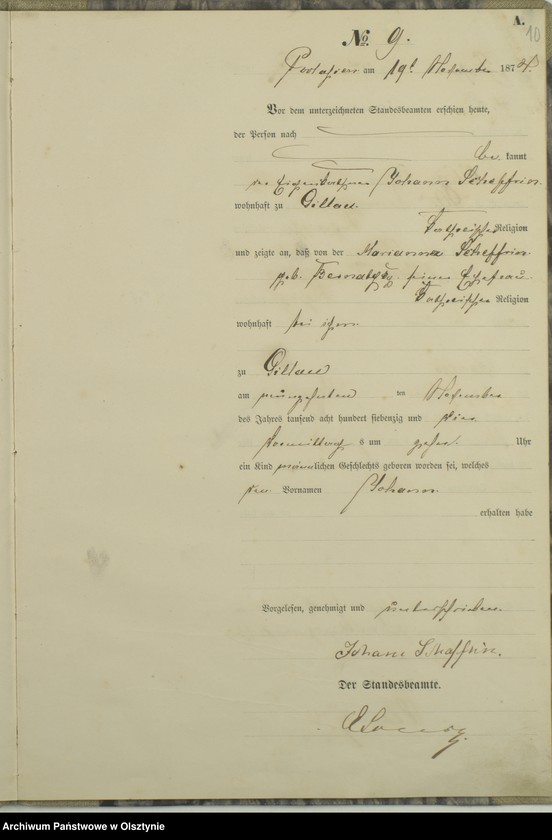 A.
10
No. 9.
am 19t November 1874.
Vor dem unterzeichneten Standesbeamten erschien heute,
der Person nach
be kannt
der Johann Scheffrin
wohnhaft zu Gillau
katholischer Religion
und zeigte an, daß von der Marianna Scheffrin
geb. seiner Ehefrau
katholischer Religion
wohnhaft bei ihm
zu Gillau
am neunzehnten ten November
des Jahres tausend acht hundert siebenzig und vier
Vormittag s um zehn Uhr
ein Kind männlichen Geschlechts geboren worden sei, welches
den Vornamen Johann
erhalten habe
Vorgelesen, genehmigt und unterschrieben
Johann
Der Standesbeamte.
Archiwum Państwowe w Olsztynie